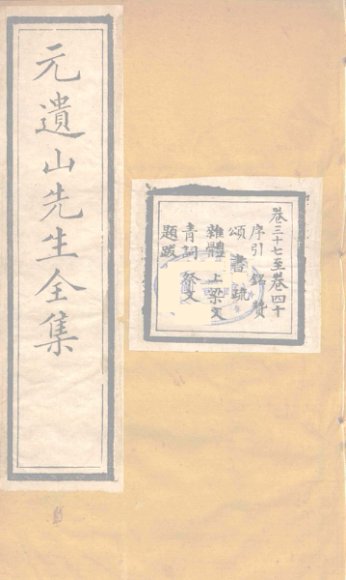 元遺山先生全集
卷三十七至卷四十
序引 銘 贊
頌 書 疏
雜體 上梁文
青詞 祭文
題跋